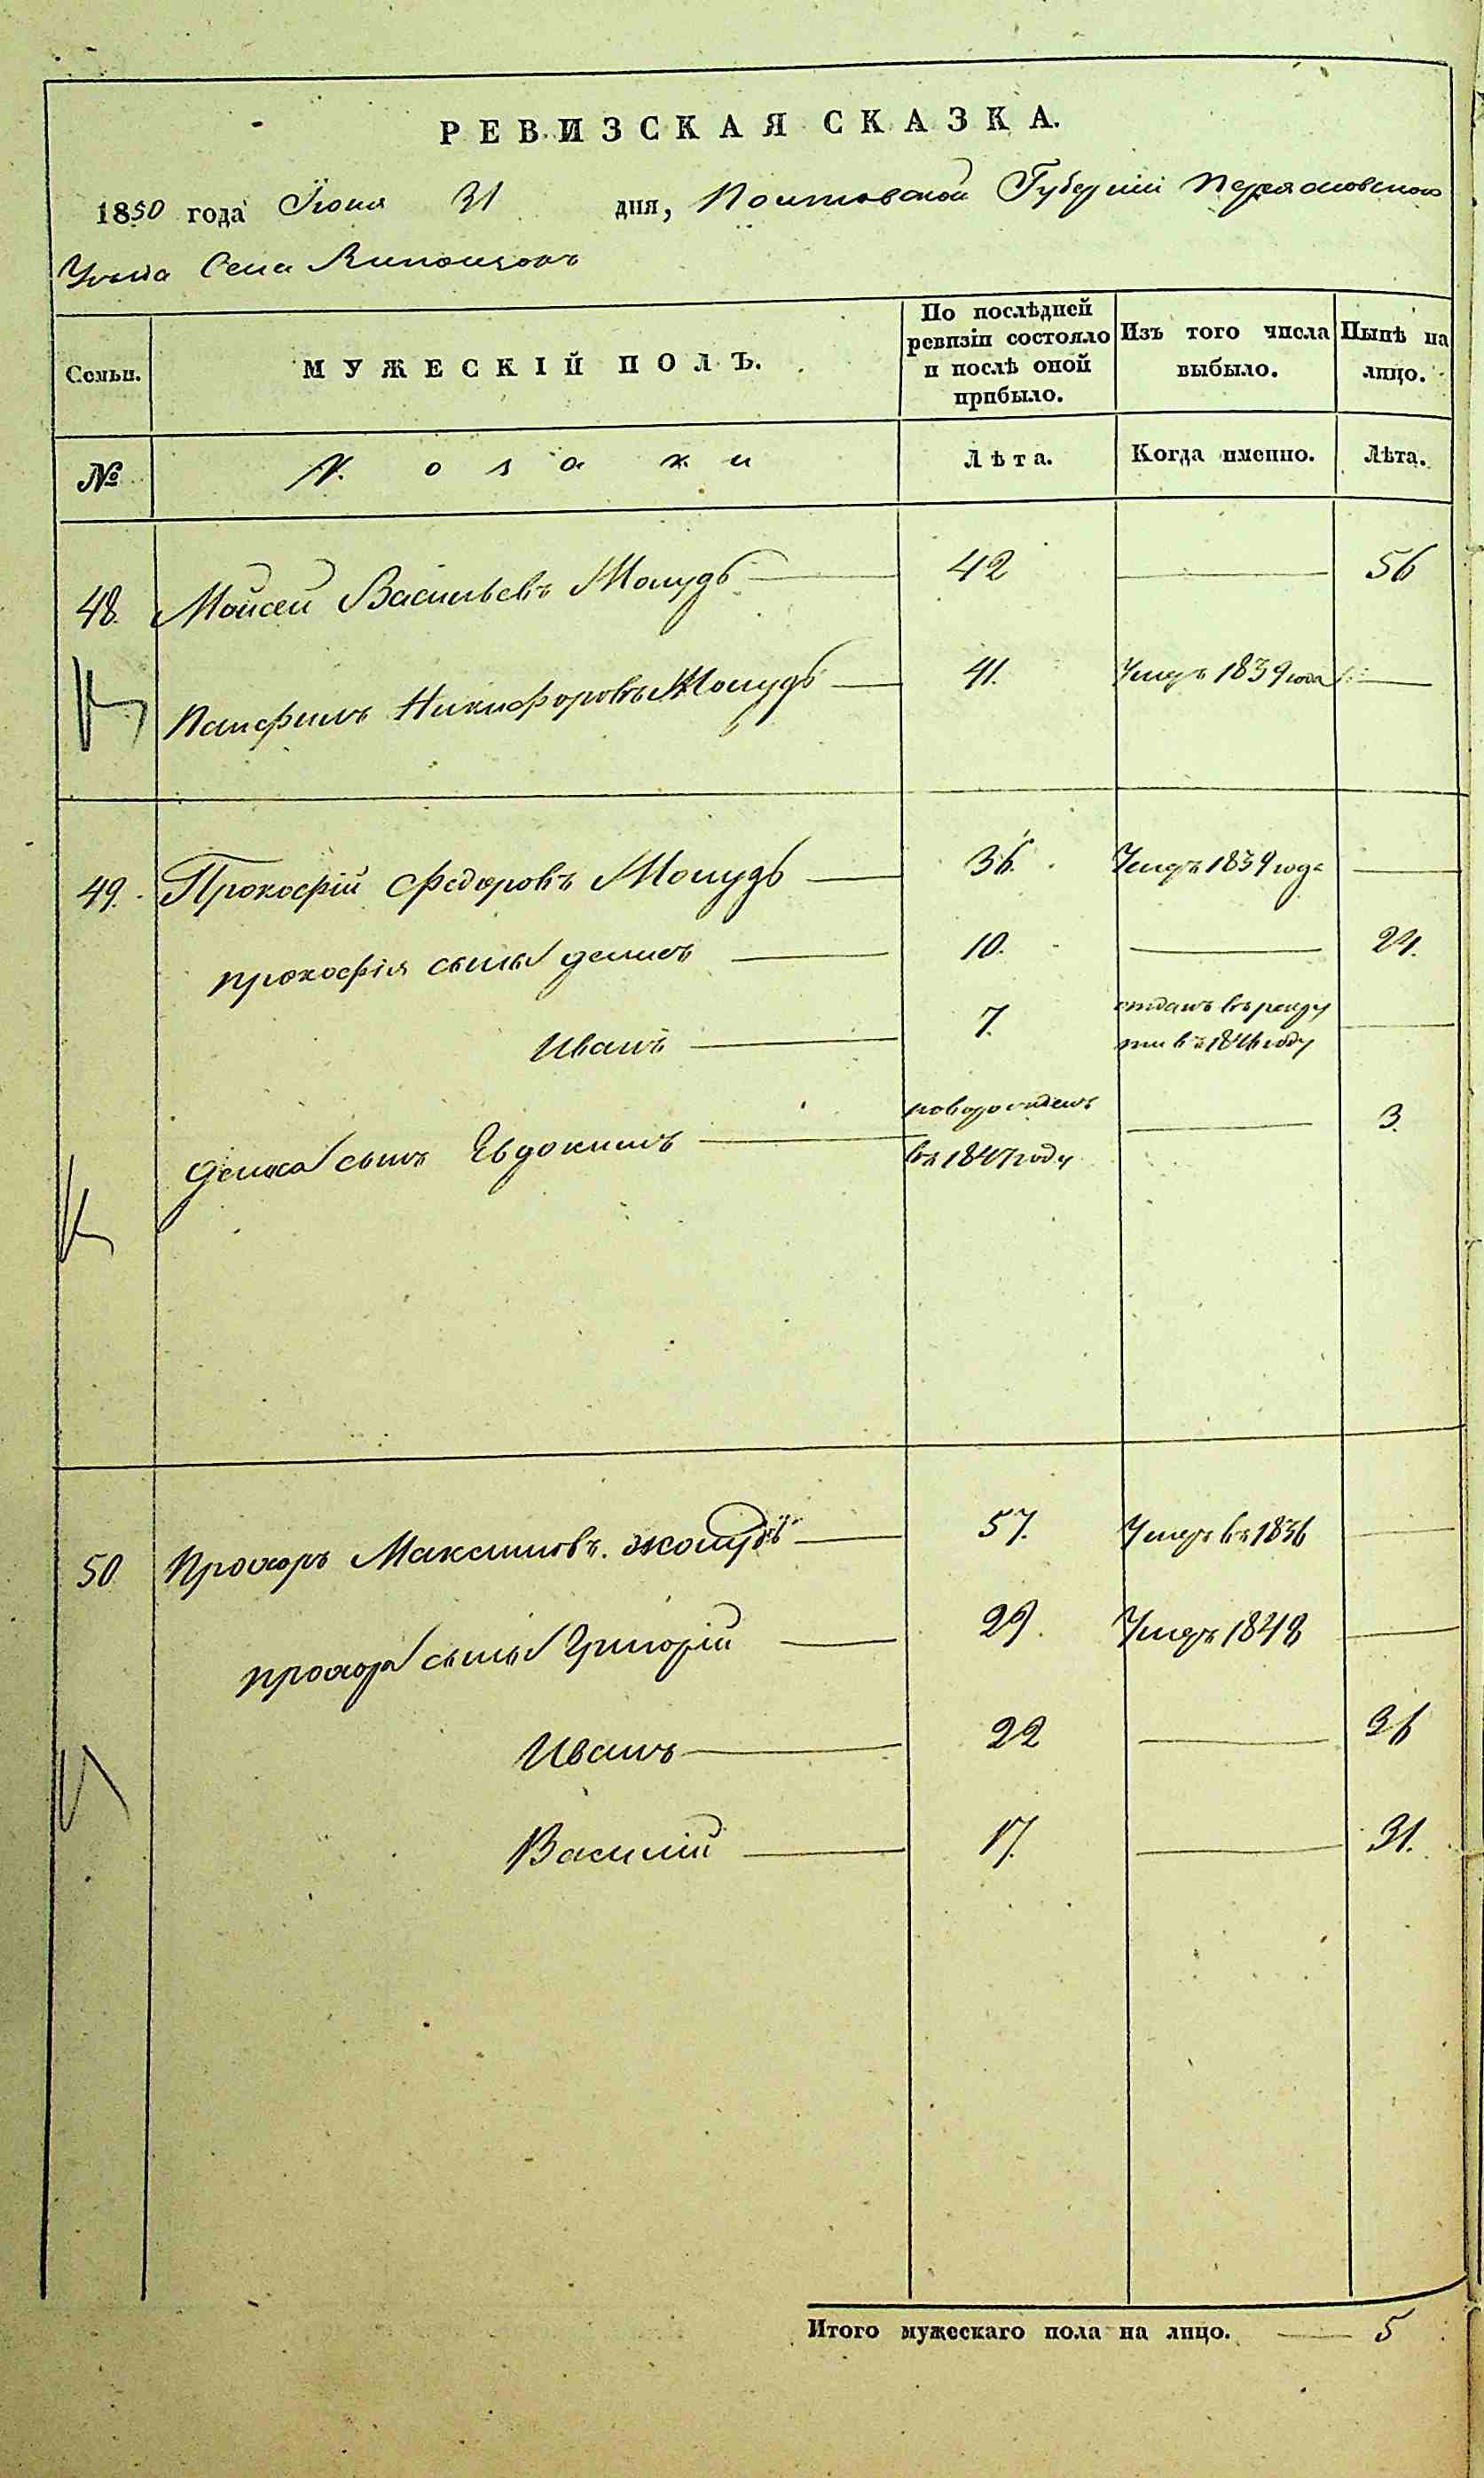 РЕВИЗСКАЯ СКАЗКА.
1850 года Іюня 31 дня, Полтавской Губерніи Переяславского
Уезда Села Липлявъ
Семьи. МУЖЕСКІЙ ПОЛЪ. По послѣдней ревизіи состояло и послѣ оной прибыло. Изъ того числа выбыло. Нынѣ на лицо.
№ Козаки Лѣта. Когда именно. Лѣта.
48. Мойсей Васильевъ Жолудь 42 56
Панфилъ Никифоровъ Жолудь 41. Умеръ 1839 года
49. Прокофій Федоровъ Жолудь 36. Умеръ 1839 года
Прокофія сынъ Денисъ 10. 24.
Иванъ 7. отданъ въ рекруты въ 1846 году
Дениса сынъ Евдокимъ новорожденъ въ 1847 году 3.
50 Прохоръ Максимовъ Жолудь 57. Умеръ въ 1836
Прохора сынъ Григорій 29. Умеръ 1848
Иванъ 22 36
Василій 17. 31.
Итого мужескаго пола на лицо. 5